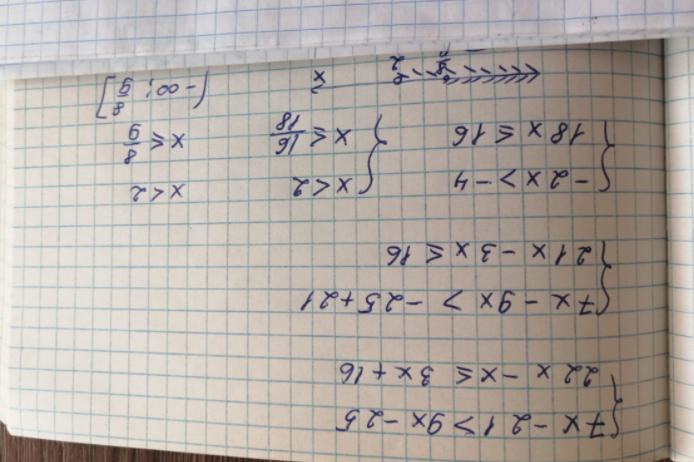 { 7x - 21 > 9x - 25
22x - x ≤ 3x + 16
{ 7x - 9x > -25 + 21
21x - 3x ≤ 16
{ -2x > -4 { x < 2 x < 2
18x ≤ 16 x ≤ 16/18 x ≤ 8/9
x (-∞; 8/9]